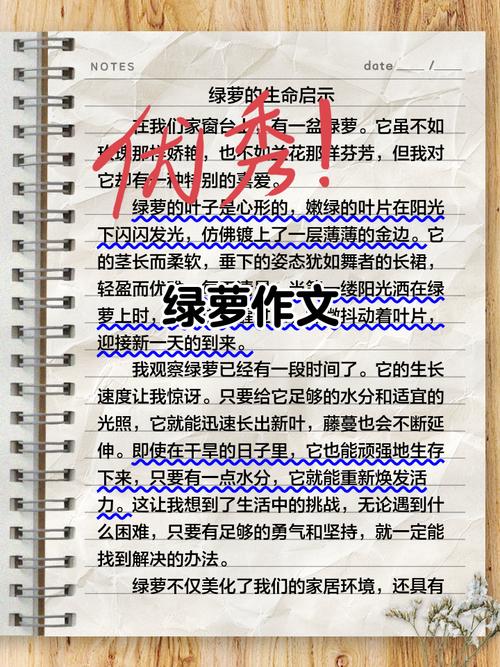 NOTES
date ___ / ___
绿萝的生命启示
在我们家窗台上,有一盆绿萝。它虽不如
玫瑰那样娇艳,也不如兰花那样芬芳,但我对
它却有一种特别的喜爱。
优秀!
绿萝的叶子是心形的,嫩绿的叶片在阳光
下闪闪发光,仿佛镀上了一层薄薄的金边。它
的茎长而柔软,垂下的姿态犹如舞者的长裙,
轻盈而优
一缕阳光洒在绿
绿萝作文
萝上时,
抖动着叶片,
迎接新一天的到来。
我观察绿萝已经有一段时间了。它的生长
速度让我惊讶。只要给它足够的水分和适宜的
光照,它就能迅速长出新叶,藤蔓也会不断延
伸。即使在干旱的日子里,它也能顽强地生存
下来,只要有一点水分,它就能重新焕发活
力。这让我想到了生活中的挑战,无论遇到什
么困难,只要有足够的勇气和坚持,就一定能
找到解决的办法。
绿萝不仅美化了我们的家居环境,还具有